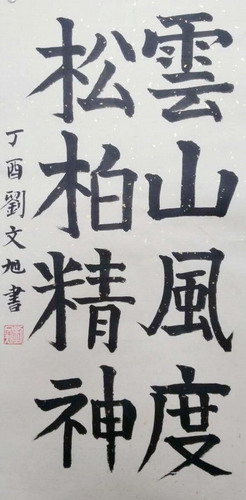 雲山風度
松柏精神
丁酉劉文旭書